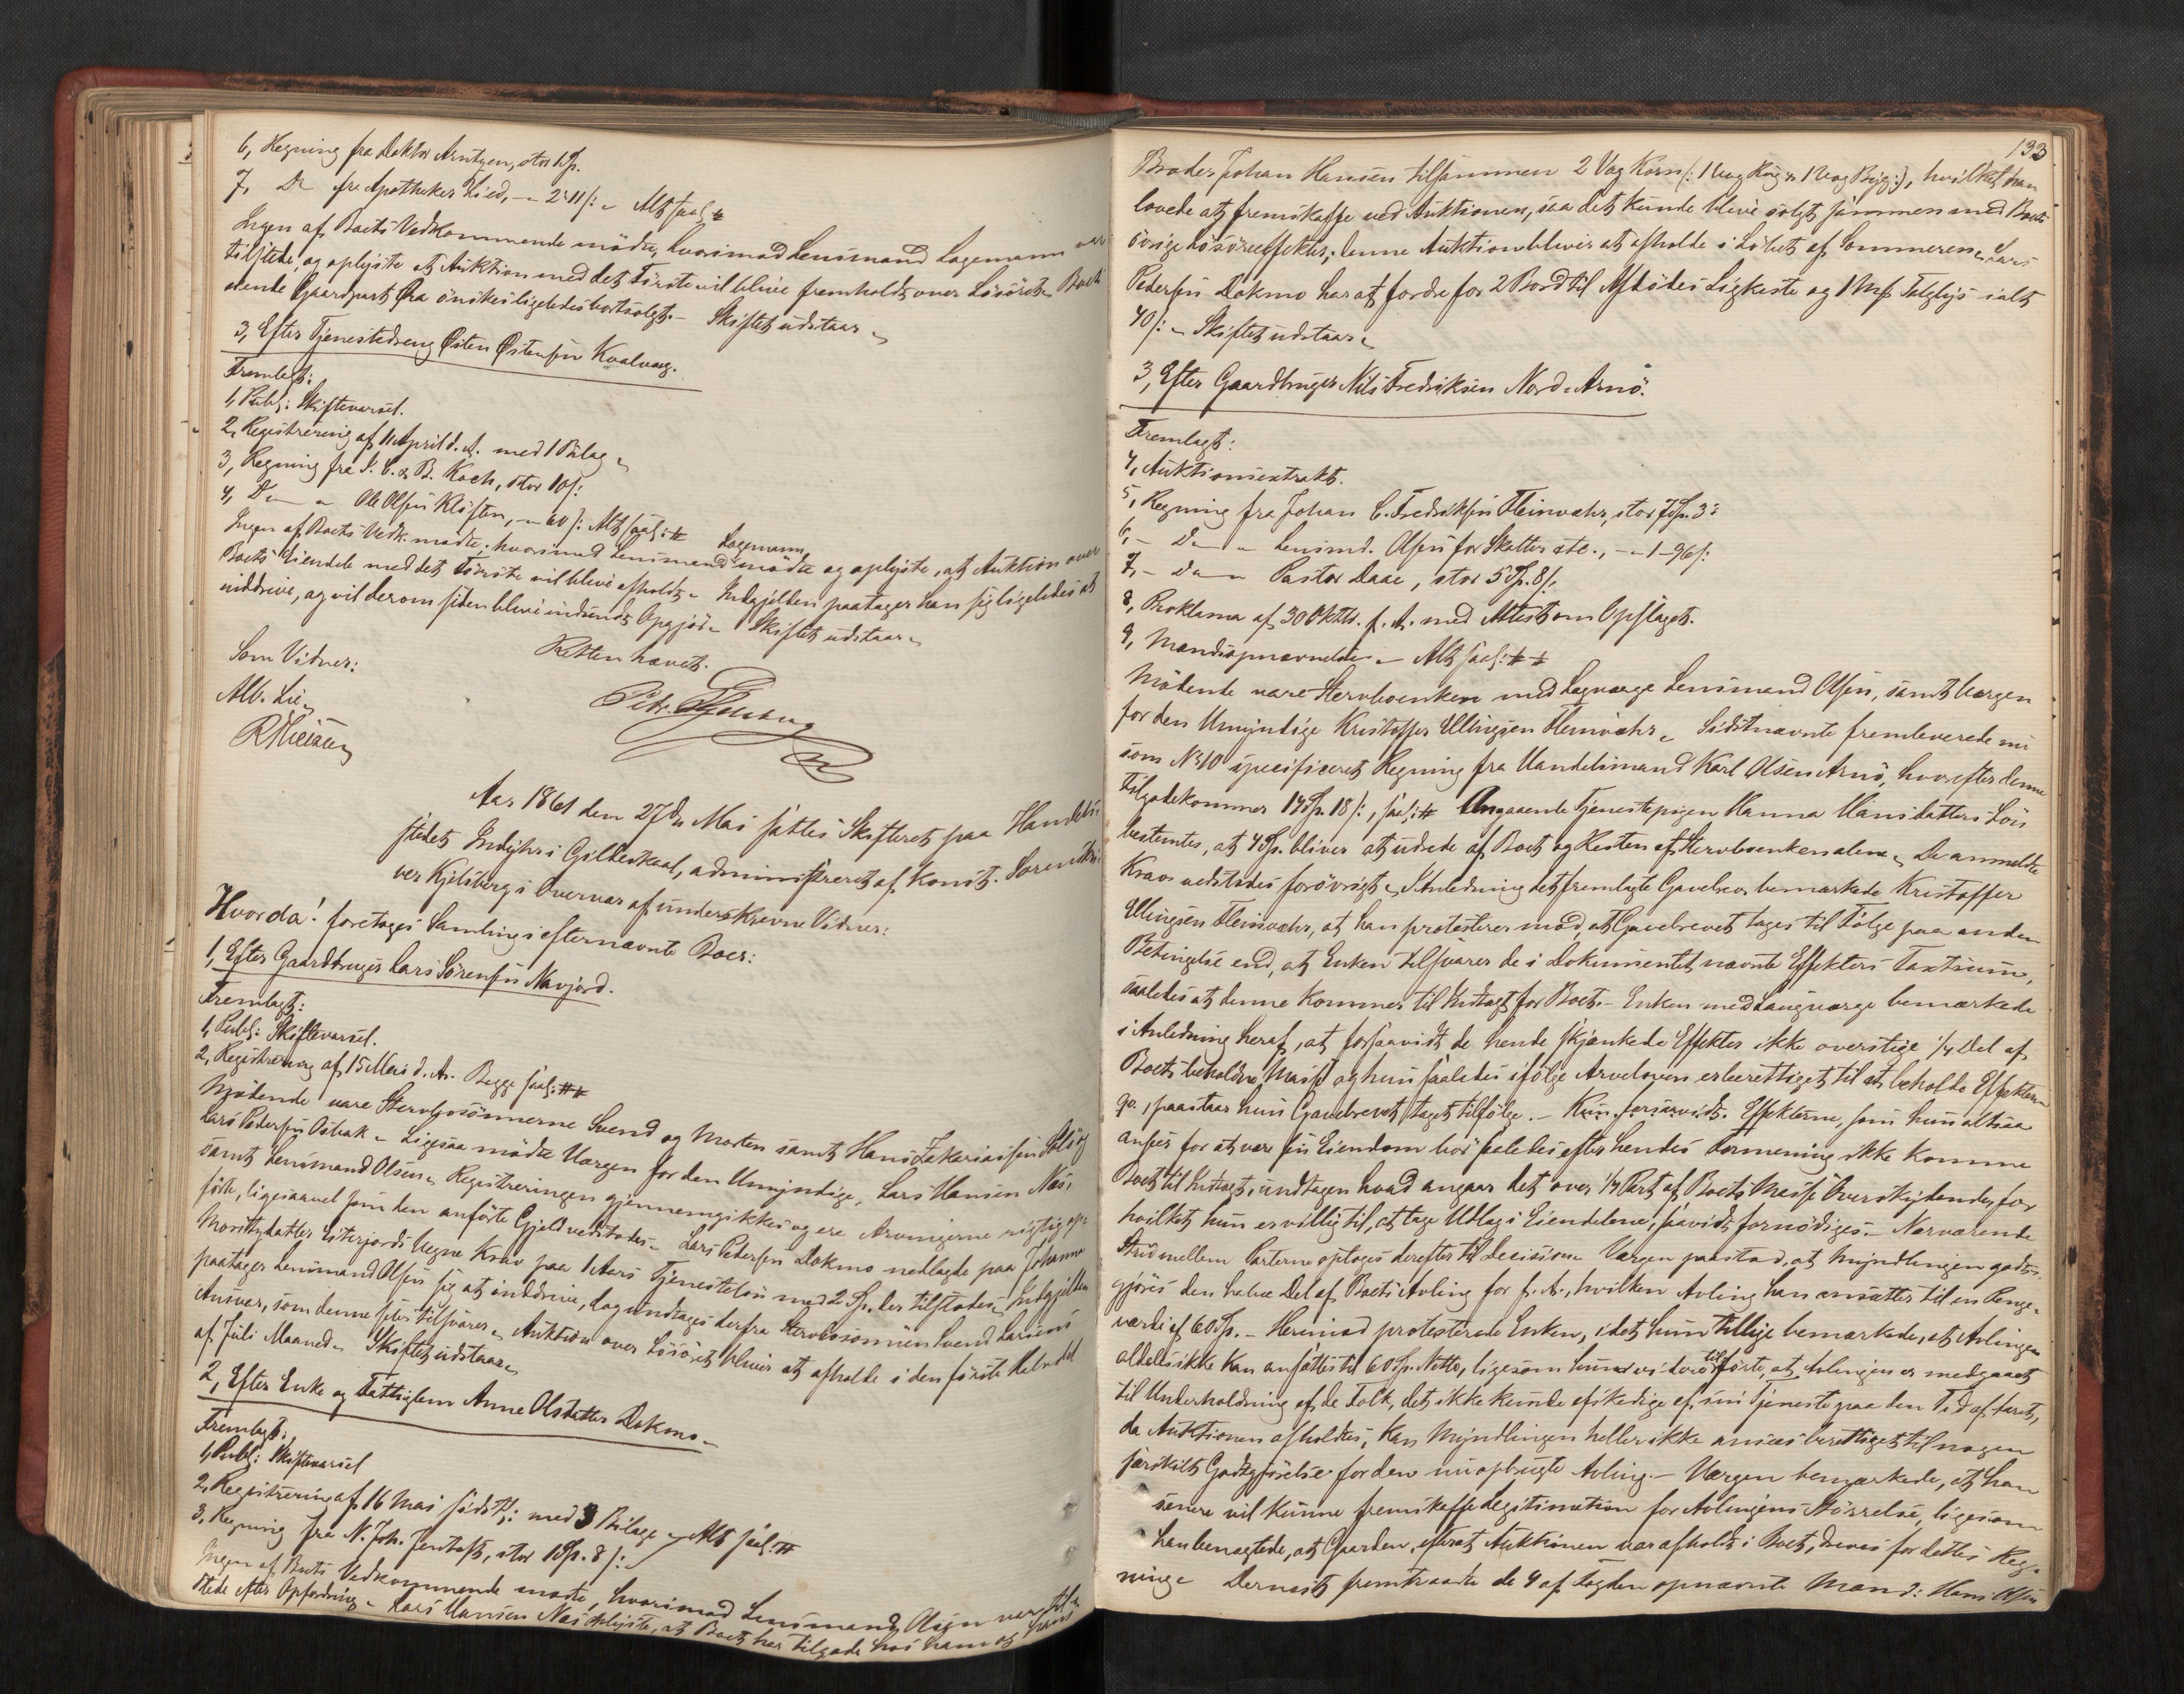 6, Regning fra Doktor Arntzen, stor 1 Sp.
7, Do fra Apotheker Lied, – 2: 11 /: – Alt saal:
Ingen af Boets Vedkommende mødte, hvorimod Lensmand Lagemann var
tilstede, og oplyste at Auktion med det Første vil blive fremholdt over Løsøret. Boets
Gaardpart ønskes ligeledes bortsolgt. – Skiftet udstaar.
3, Efter Tjenestedreng Østen Østensen Kvalvaag.
Fremlagt:
1, Publ: Skiftevarsel.
2, Registrering af 11 April d. A. med 1 Bilag.
3, Regning fra J. C. & B. Koch, stor 10 /:
4, Do – Ole Olsen Kløften, – 60 /: Alt saal:
Ingen af Boets Vedk. mødte, hvorimod Lensmand Lagemann mødte og oplyste, at Auktion over
Boets Eiendele med det Første vil blive afholdt. Indgjelden paatager han sig ligeledes at
inddrive, og vil derom siden blive indsendt Opgjør. Skiftet udstaar.
Retten hævet.
Som Vidner:
Alb. Lie
Aar 1861 den 27de Mai sattes Skifteret paa Handels-
stedet Indyhr i Gildeskaal, administreret af Konst. Sorenskri-
ver Kjelsberg i Overvær af underskrevne Vidner:
Hvorda! foretoges Samling i efternævnte Boer:
1, Efter Gaardbruger Lars Sørensen Navjord.
Fremlagt:
1, Publ: Skiftevarsel.
2, Registrering af 15 Mai d. A. Begge saal:
Mødende vare Stervbosønnerne Svend og Morten samt Hans Zakariassen
Lars Pedersen – Ligesaa mødte Værgen for den Umyndige, Lars Hansen Næs,
samt Lensmand Olsen. Registreringen gjennemgikkes og ere Arvingerne rigtig op-
førte, ligesaavel som den anførte Gjeld vedstodes. Lars Pedersen Dokmo nedlagde paa Johanna
Moritzdatter Vegne Krav paa 1 Aars Tjenesteløn med 2 Sp. der tilstodes. Indgjelden
paatager Lensmand Olsen sig at inddrive, dog undtages derfra Stervbosønnen Svend Larsens
Ansvar, som denne selv tilsvarer. Auktion over Løsøret bliver at afholde i den første Halvdel
af Juli Maaned. Skiftet udstaar.
2, Efter Enke og Fattiglem Anne Olsdatter Dokmo.
Fremlagt:
1, Publ: Skiftevarsel
2, Registrering af 16 Mai sidstl: med 3 Bilage – Alt saal:
3, Regning fra N. Joh. Jentoft, stor 1 Sp. 8 /:
Ingen af Boets Vedkommende mødte, hvorimod Lensmand Olsen var til-
stede efter Opfordring. Lars Hansen Næs oplyste, at Boet har tilgode hos ham og hans
133
Broder Johan Hansen tilsammen 2 Vog Korn (: 1 Vog Rug & 1 Vog Byg :), hvilket han
lovede at fremskaffe ved Auktionen, saa det kunde blive solgt sammen med Boets
øvrige Løsøreeffekter; denne Auktion bliver at afholde i Løbet af Sommeren. Lars
Pedersen Dokmo har at fordre for 2 Bord til Afdødes Ligkiste og 1 Mk Talglys ialt
40 /: – Skiftet udstaar.
3, Efter Gaardbruger Nils Fredriksen Nord-Arnø.
Fremlagt:
4, Auktionsextrakt.
5, Regning fra Johan C. Fredriksen Fleinvæhr, stor 7 Sp. 3:
6, – Do – Lensmd. Olsen for Skatter etc., – 1 – 96 /:
7, – Do – Pastor Daae, stor 5 Sp. 8 /:
8, Proklama af 30 Oktbr. f. A. med Attest om Opslaget.
9, Mandsopnævnelse – Alt saal:
Mødende vare Stervboenken med Lagværge Lensmand Olsen, samt Værgen
for den Umyndige Kristoffer Ellingsen Fleinvæhr. Sidstnævnte fremleverede nu
som No 10 specificeret Regning fra Handelsmand Karl Olsen Arnø, hvorefter denne
tilgodekommer 14 Sp. 18 /:, saal: Angaaende Tjenestepigen Hanna Hansdatters Løn
bestemtes, at 4 Sp. bliver at udrede af Boet og Resten af Stervboenken alene. De anmeldte
Krav vedstodes forøvrigt. I Anledning det fremlagte Gavebrev bemærkede Kristoffer
Ellingsen Fleinvæhr, at han protesterer mod at Gavebrevet tages til Følge paa anden
Betingelse end, at Enken tilsvarer de i Dokumentet nævnte Effekters Taxtsum,
saaledes at denne kommer til Indtægt for Boet. – Enken med Laugværge bemærkede
i Anledning heraf, at forsaavidt de hende skjænkede Effekter ikke overstige 1/4 Del af
Boets beholdne Masse og hun saaledes ifølge Arveloven er berettiget til at beholde Effekterne
qv., paastaar hun Gavebrevet taget tilfølge. – Kun forsaavidt. Effekterne, som hun altsaa
anser for at være sin Eiendom bør saaledes efter hendes Formening ikke komme
Boet til Indtægt, undtagen hvad angaar det over 1/4 Part af Boets Masse Overskydende, for
hvilket hun er villig til, at tage Udlæg i Eiendelene, saavidt fornødiges. – Nærværende
Strid mellem Parterne optages derefter til Decision. Værgen paastod, at Myndlingen godt-
gjøres den halve Del af Boets Avling for f. A., hvilken Avling han ansætter til en Penge-
værdi af 60 Sp. – Herimod protesterede Enken, idet hun tillige bemærkede, at Avlingen
aldeles ikke kan ansættes til 60 Sp. Netto, ligesom hun videre tilførte, at Avlingen er medgaaet
til Underholdning af de Folk, det ikke kunde afskedige af sin Tjeneste paa den Tid af Aaret,
da Auktionen afholdtes, kan Myndlingen heller ikke ansees berettiget til nogen
særskilt Godtgjørelse for den nu opbrugte Avling. – Værgen bemærkede, at han
senere vil kunne fremskaffe Legitimation for Avlingens Størrelse, ligesom
han benægtede, at Gaarden, efterat Auktionen var afholdt i Boet, dreves for dettes Reg-
ning. Dernæst fremtraadte de 4 af Fogden opnævnte Mænd: Hans Olsen